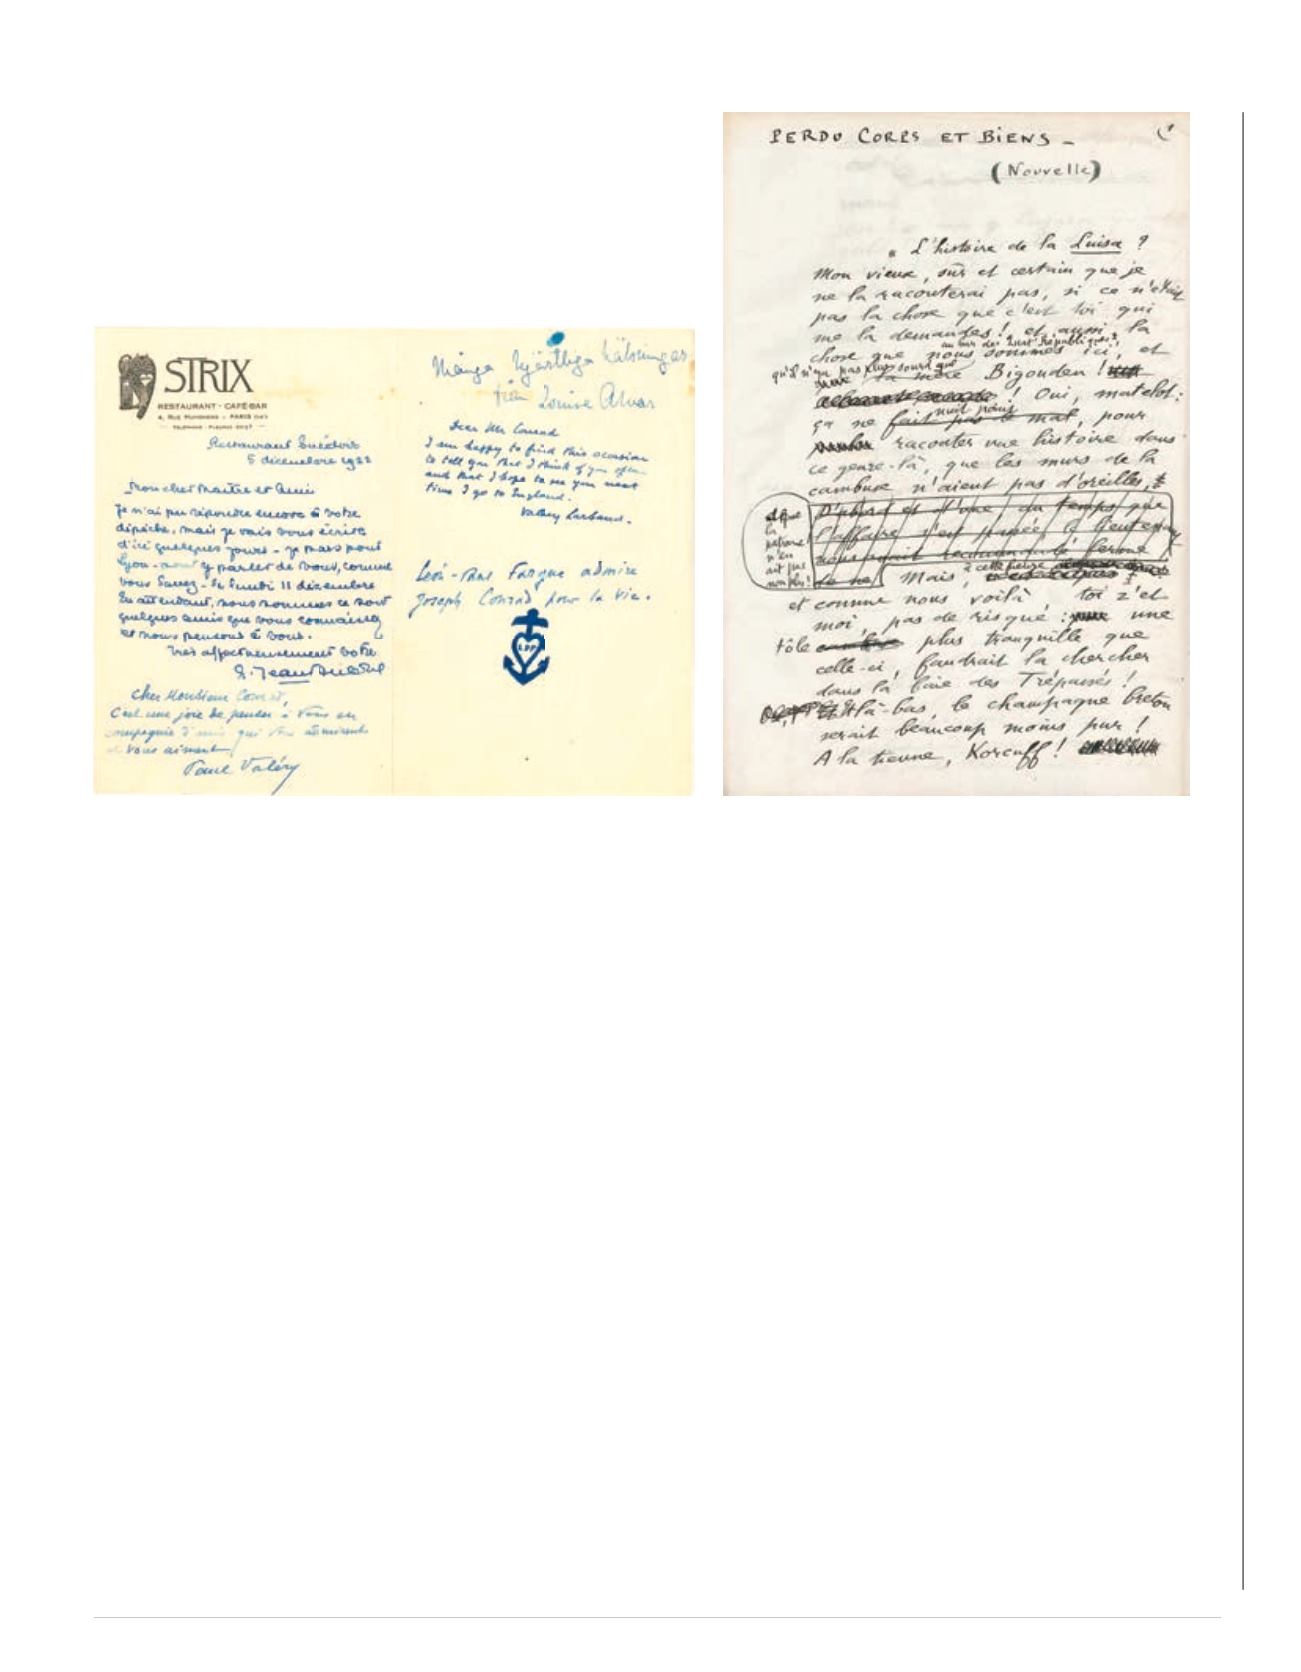 STRIX
RESTAURANT - CAFÉ-BAR
4, Rue Huyghens - PARIS (14e)
Restaurant Suédois
5 décembre 1922
Mon cher Maître et Ami
Je n'ai pu répondre encore à votre
dépêche, mais je vais vous écrire
d'ici quelques jours - Je pars pour
Lyon - pour y parler de vous, comme
vous savez - le lundi 11 décembre
En attendant, nous sommes ce soir
quelques amis que vous connaissez
et nous pensons à vous.
Très affectueusement votre
G. Jean-Aubry
Cher Monsieur Conrad,
C'est une joie de penser à vous en
compagnie d'amis qui vous admirent
et vous aiment
Paul Valéry
Många hjärtliga hälsningar
från Louise Alvar
Dear Mr Conrad
I am happy to find this occasion
to tell you that I think of you often
and that I hope to see you next
time I go to England.
Valery Larbaud.
Léon-Paul Fargue admire
Joseph Conrad pour la vie.
LPF
PERDU CORPS ET BIENS -
(Nouvelle)
« L'histoire de la Luisa ?
Mon vieux, sûr et certain que je
ne la raconterai pas, si ce n'était
pas la chose que c'est toi qui
me la demandes ! et aussi la
chose que nous sommes ici, et
qu'il n'y a pas plus sourd que
la mère Bigouden !
! Oui, matelot :
ça ne fait pas de mal, pour
raconter une histoire dans
ce genre-là, que les murs de la
cambuse n'aient pas d'oreilles,
et que
la
patronne
n'en
ait pas
non plus !
D'abord et d'une, du temps que
l'affaire s'est passée, le lieutenant
nous avait recommandé ferme
de ne Mais, à cette heure
et comme nous voilà toi z'et
moi, pas de risque : une
tôle plus tranquille que
celle-ci, faudrait la chercher
dans la baie des Trépassés !
là-bas, le champagne breton
serait beaucoup moins pur !
A la tienne, Korcuff !